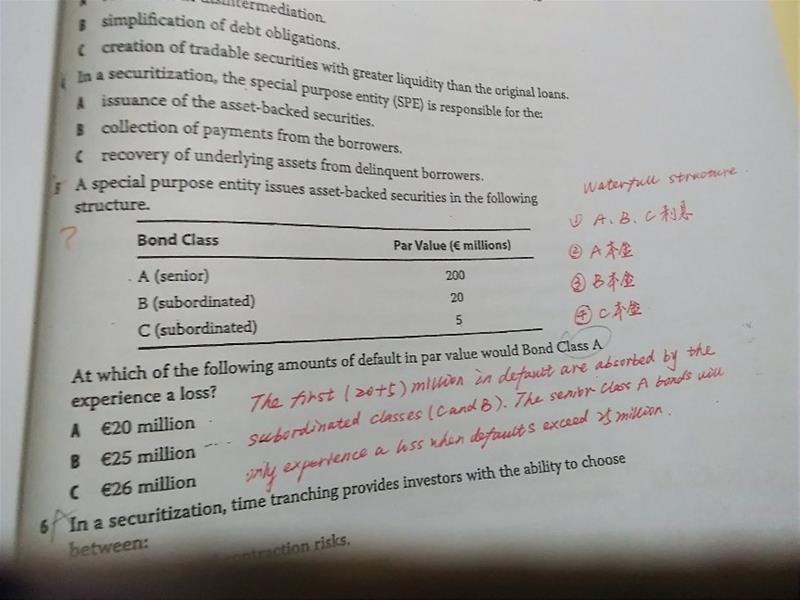 disintermediation.
B simplification of debt obligations.
C creation of tradable securities with greater liquidity than the original loans.
In a securitization, the special purpose entity (SPE) is responsible for the:
A issuance of the asset-backed securities.
B collection of payments from the borrowers.
C recovery of underlying assets from delinquent borrowers.
5 A special purpose entity issues asset-backed securities in the following
structure.
?
Bond Class Par Value (€ millions)
A (senior) 200
B (subordinated) 20
C (subordinated) 5
Waterfull structure.
① A、B、C利息
② A本金
③ B本金
④ C本金
At which of the following amounts of default in par value would Bond Class A
experience a loss?
A €20 million
B €25 million
C €26 million
The first (20+5) million in default are absorbed by the
subordinated classes (C and B). The senior class A bonds will
only experience a loss when defaults exceed 25 million.
6 In a securitization, time tranching provides investors with the ability to choose
between:
contraction risks.